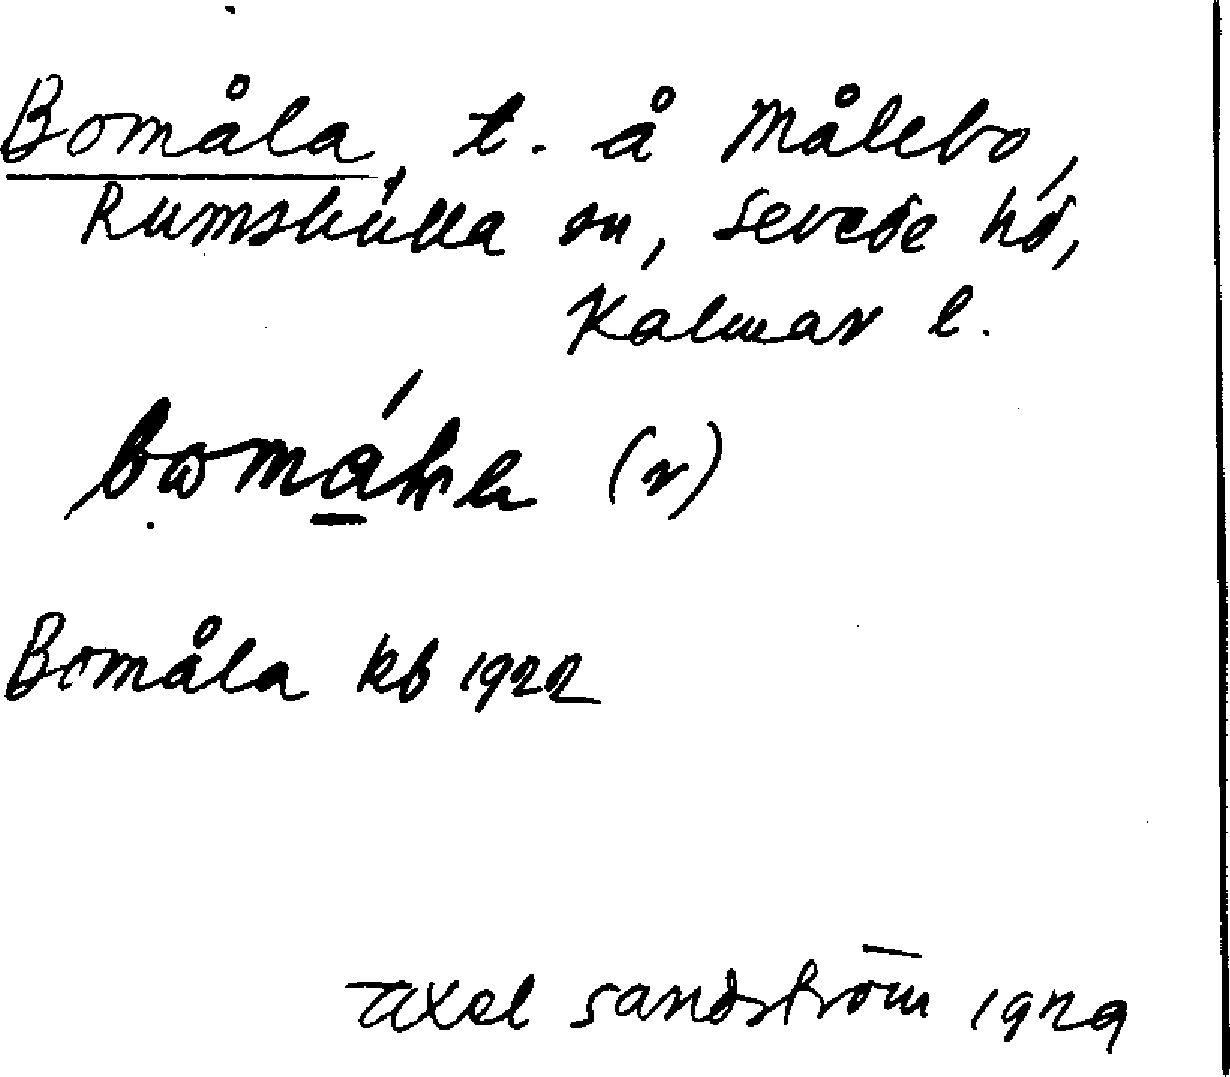 Bomåla, t. å Målebo,
Rumskulla sn, Sevede hd,
Kalmar l.
(r)
Bomåla kb 1922
Axel Sandström 1929